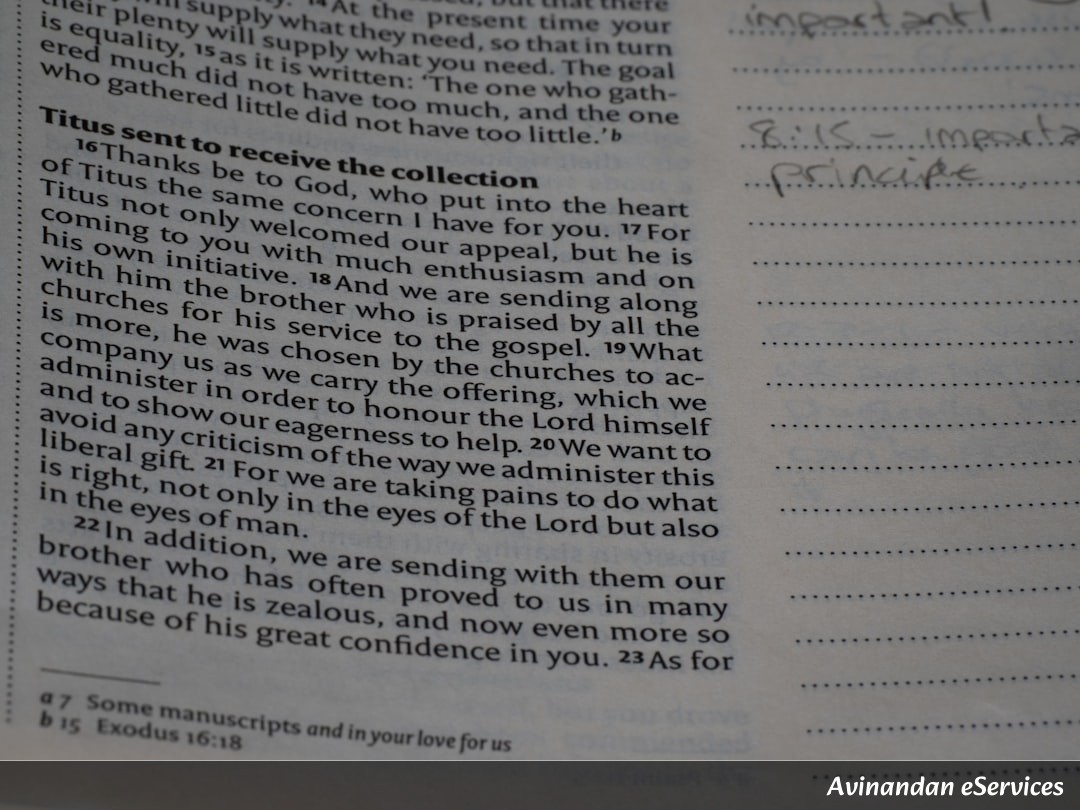 supply what they need, so that in turn
14 At the present time your
their plenty will supply what you need. The goal
is equality, 15 as it is written: ‘The one who gath-
ered much did not have too much, and the one
who gathered little did not have too little.’ b
Titus sent to receive the collection
16 Thanks be to God, who put into the heart
of Titus the same concern I have for you. 17 For
Titus not only welcomed our appeal, but he is
coming to you with much enthusiasm and on
his own initiative. 18 And we are sending along
with him the brother who is praised by all the
churches for his service to the gospel. 19 What
is more, he was chosen by the churches to ac-
company us as we carry the offering, which we
administer in order to honour the Lord himself
and to show our eagerness to help. 20 We want to
avoid any criticism of the way we administer this
liberal gift. 21 For we are taking pains to do what
is right, not only in the eyes of the Lord but also
in the eyes of man.
22 In addition, we are sending with them our
brother who has often proved to us in many
ways that he is zealous, and now even more so
because of his great confidence in you. 23 As for
a 7 Some manuscripts and in your love for us
b 15 Exodus 16:18
important!
8:15 – importa
principle
Avinandan eServices